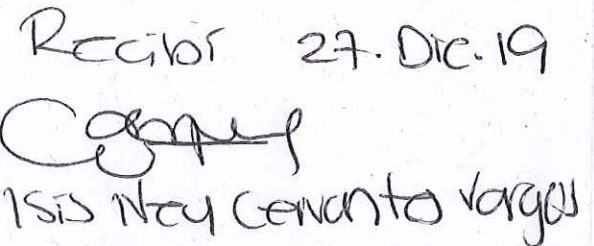 Recibí 27. Dic. 19
Isis Ney Cervanto Vargas